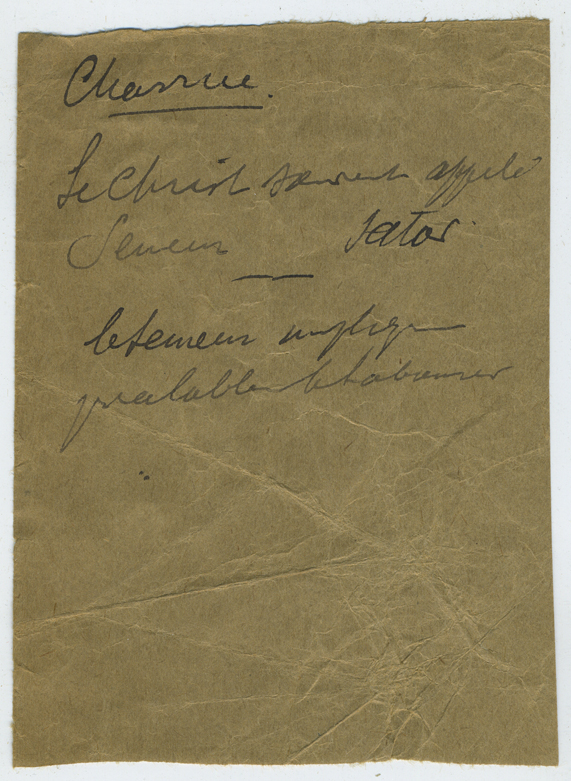 Charrue.
Le Christ souvent appelé
Semeur Sator.
le semeur implique
préalable le laboureur